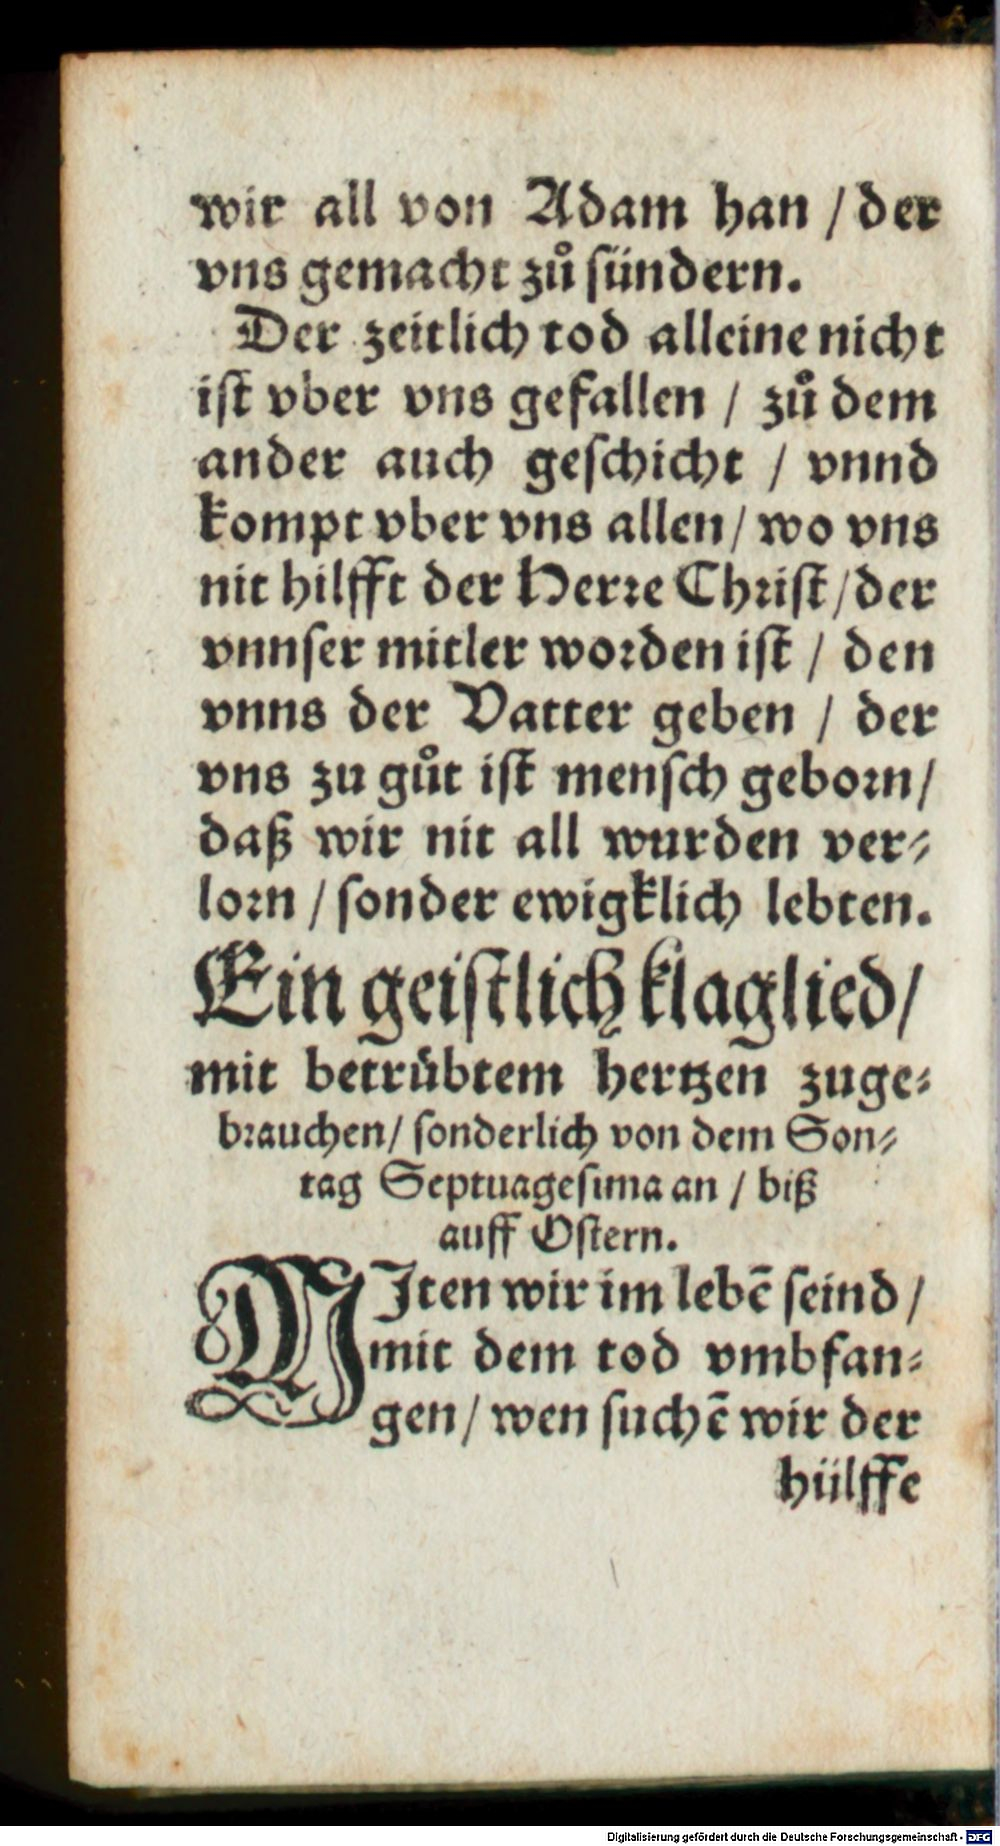 wir all von Adam han / der
vns gemacht zů sündern.
Der zeitlich tod alleine nicht
ist vber vns gefallen / zů dem
ander auch geschicht / vnnd
kompt vber vns allen / wo vns
nit hilfft der Herre Christ / der
vnnser mitler worden ist / den
vnns der Vatter geben / der
vns zu gůt ist mensch geborn /
daß wir nit all wurden ver⸗
lorn / sonder ewigklich lebten.
Ein geistlich klaglied /
mit betrübtem hertzen zuge⸗
brauchen / sonderlich von dem Son⸗
tag Septuagesima an / biß
auff Ostern.
MIten wir im lebẽ seind /
mit dem tod vmbfan⸗
gen / wen suchẽ wir der
hülffe
Digitalisierung gefördert durch die Deutsche Forschungsgemeinschaft - DFG